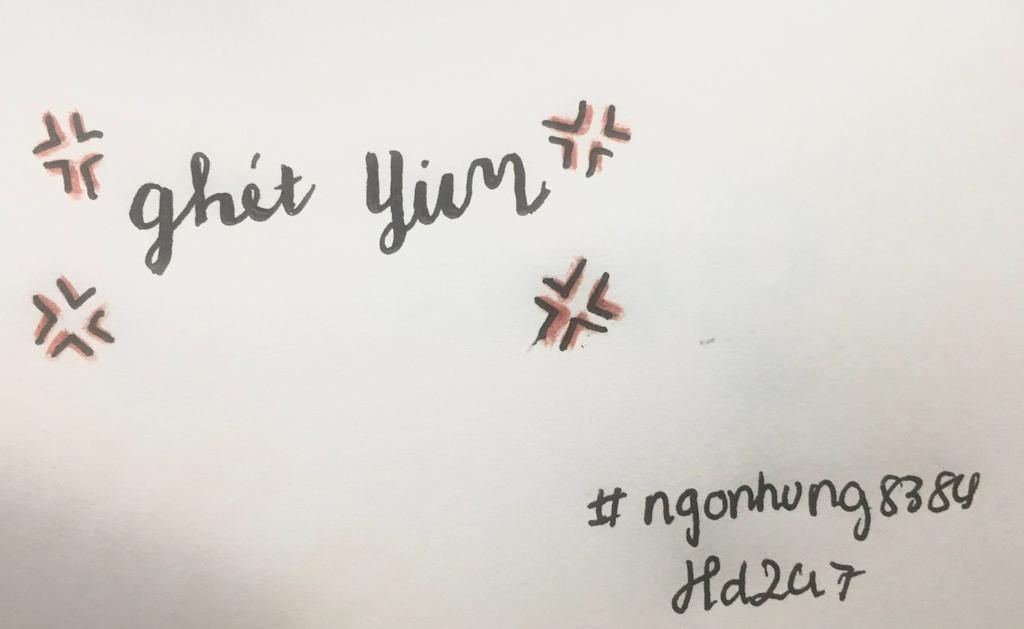 ghét Yim
#ngonhung8384
Hd2a7